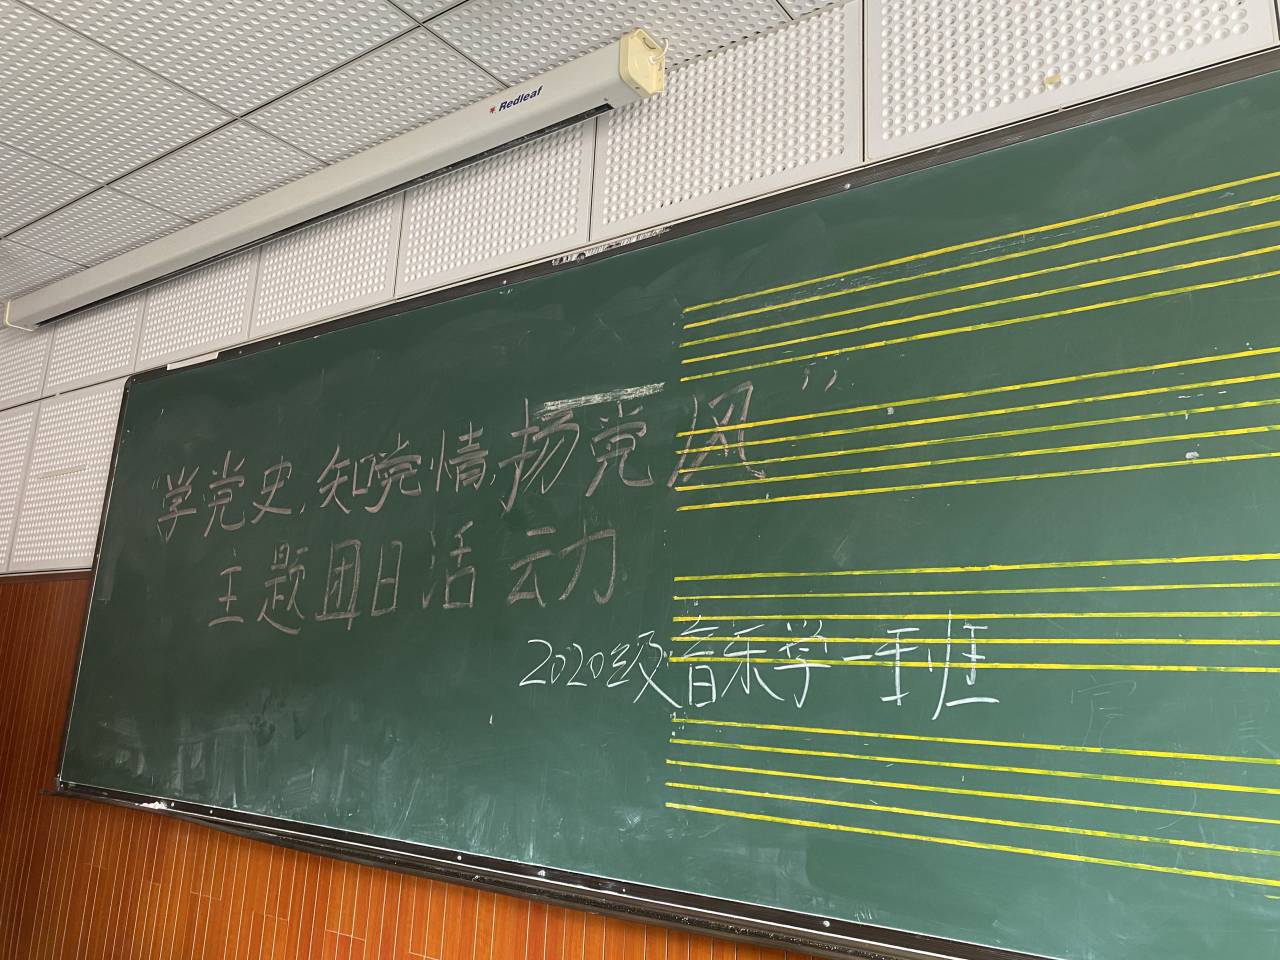 Redleaf
“学党史,知党情,扬党风”
主题团日活云力
2020级音乐学一班